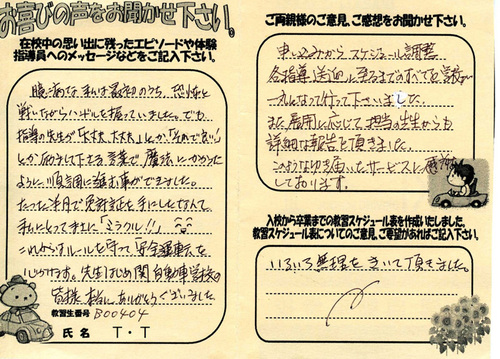 お喜びの声をお聞かせ下さい。
在校中の思い出に残ったエピソードや体験
指導員へのメッセージなどをご記入下さい。
臆病な私は最初のうち、恐怖と
戦いながらハンドルを握っていました。でも
指導の先生が「大丈夫、大丈夫」とか「それで良い」
とか 安心して下さる言葉で、魔法にかかった
ように、順調に進む事ができました。
たった半月で免許証を手にしたなんて、
私にとってまさに「ミラクル!!」
これからもルールを守って「安全運転」を
心がけます。先生はじめ関自動車学校の
皆様 本当に ありがとうございました
教習生番号 B00404
氏名 T・T
ご両親様のご意見、ご感想をお聞かせ下さい。
申し込みから スケジュール調整
各指導、送迎に至るまでのすべてを学校が
一丸となって行って下さいました。
また、雇用に応じて担当の先生からも
詳細な報告を頂きました。
このようなゆき届いたサービスに感謝
しております。
入校から卒業までの教習スケジュール表を作成いたしました。
教習スケジュール表についてのご意見、ご要望があればご記入下さい。
いろいろ無理をきいて頂きました。